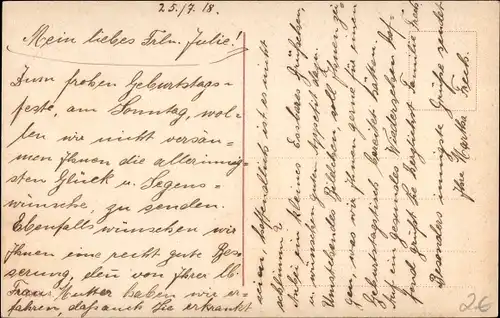 25./7. 18.
Mein liebes Frln. Julie!
Zum frohen Geburtstags-
feste, am Sonntag, wol-
len wir nicht versäu-
men Ihnen die allerinnig-
sten Glück u. Segens-
wünsche, zu senden.
Ebenfalls wünschen wir
Ihnen eine recht gute Bes-
serung, den von Ihrer lb.
Frau Mutter haben wir er-
fahren, dass auch Sie erkrankt
seien, hoffendlich ist es nicht
schlimm?
Anbei ein kleines Essbares Grüßchen,
u. wünschen guten Appetit dazu.
Umstehendes Bildchen, soll Ihnen zei-
gen, was wir Ihnen gerne für einen
Geburtstagstisch bereitet hätten.
Auf ein gesundes Wiedersehen hof-
fend grüßt Sie herzlichst Familie Freb.
Besonders innigste Grüße sendet
Ihre Martha
Freb.
2€